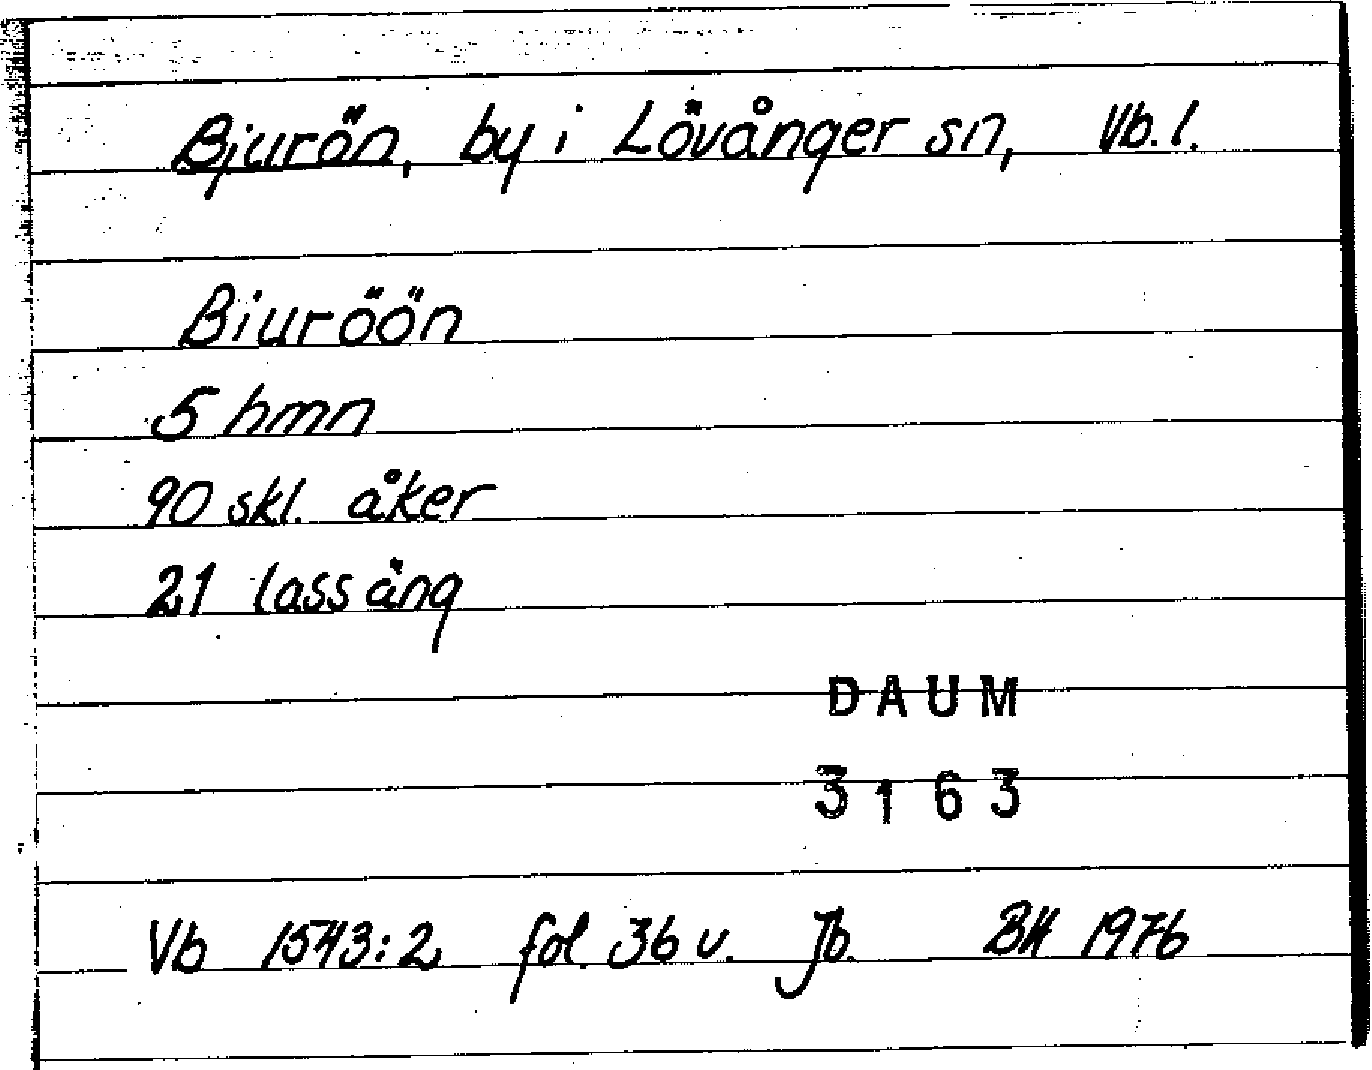 Bjurön, by i Lövånger sn, Vb. l.
Biuröön
5 hmn
90 skl. åker
21 lass äng
DAUM
3163
Vb 1543:2 fol. 36 v. Jb. BH 1976